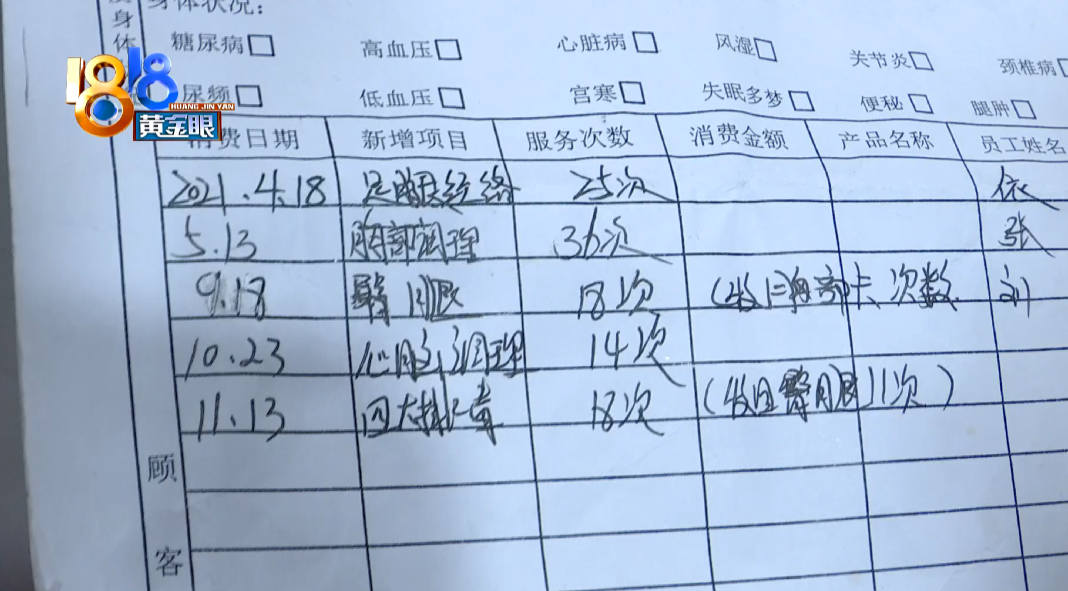 身体状况：
身体
糖尿病□ 高血压□ 心脏病□ 风湿□ 关节炎□ 颈椎病□
尿频□ 低血压□ 宫寒□ 失眠多梦□ 便秘□ 腿肿□
1818
HUANG JIN YAN
黄金眼
消费日期 新增项目 服务次数 消费金额 产品名称 员工姓名
2021.4.18 足 经络 25次 依
5.13 胸部调理 36次 张
9.18 臀 18次 次数 刘
10.23 心 调理 14次
11.13 四大排毒 18次 (收回臀 11次)
顾
客